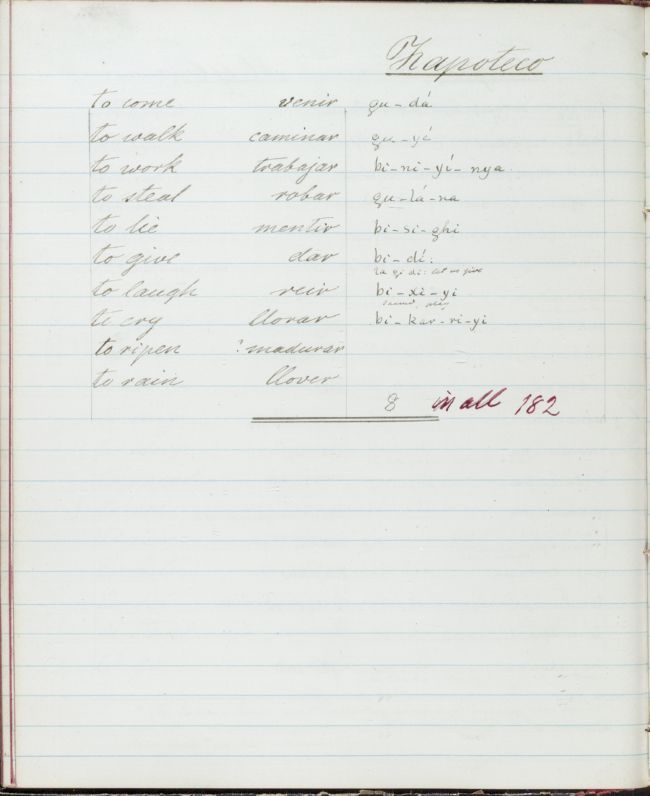 Zapoteco
to come venir gu-dá
to walk caminar gu-yí
to work trabajar bi-ni-yí-nya
to steal robar gu-lá-na
to lie mentir bi-si-ghi
to give dar bi-dí:
la gi di: let us give
to laugh reir bi-xi-yi
to cry llorar bi-kar-ri-yi
to ripen ? madurar
to rain llover
8 in all 182